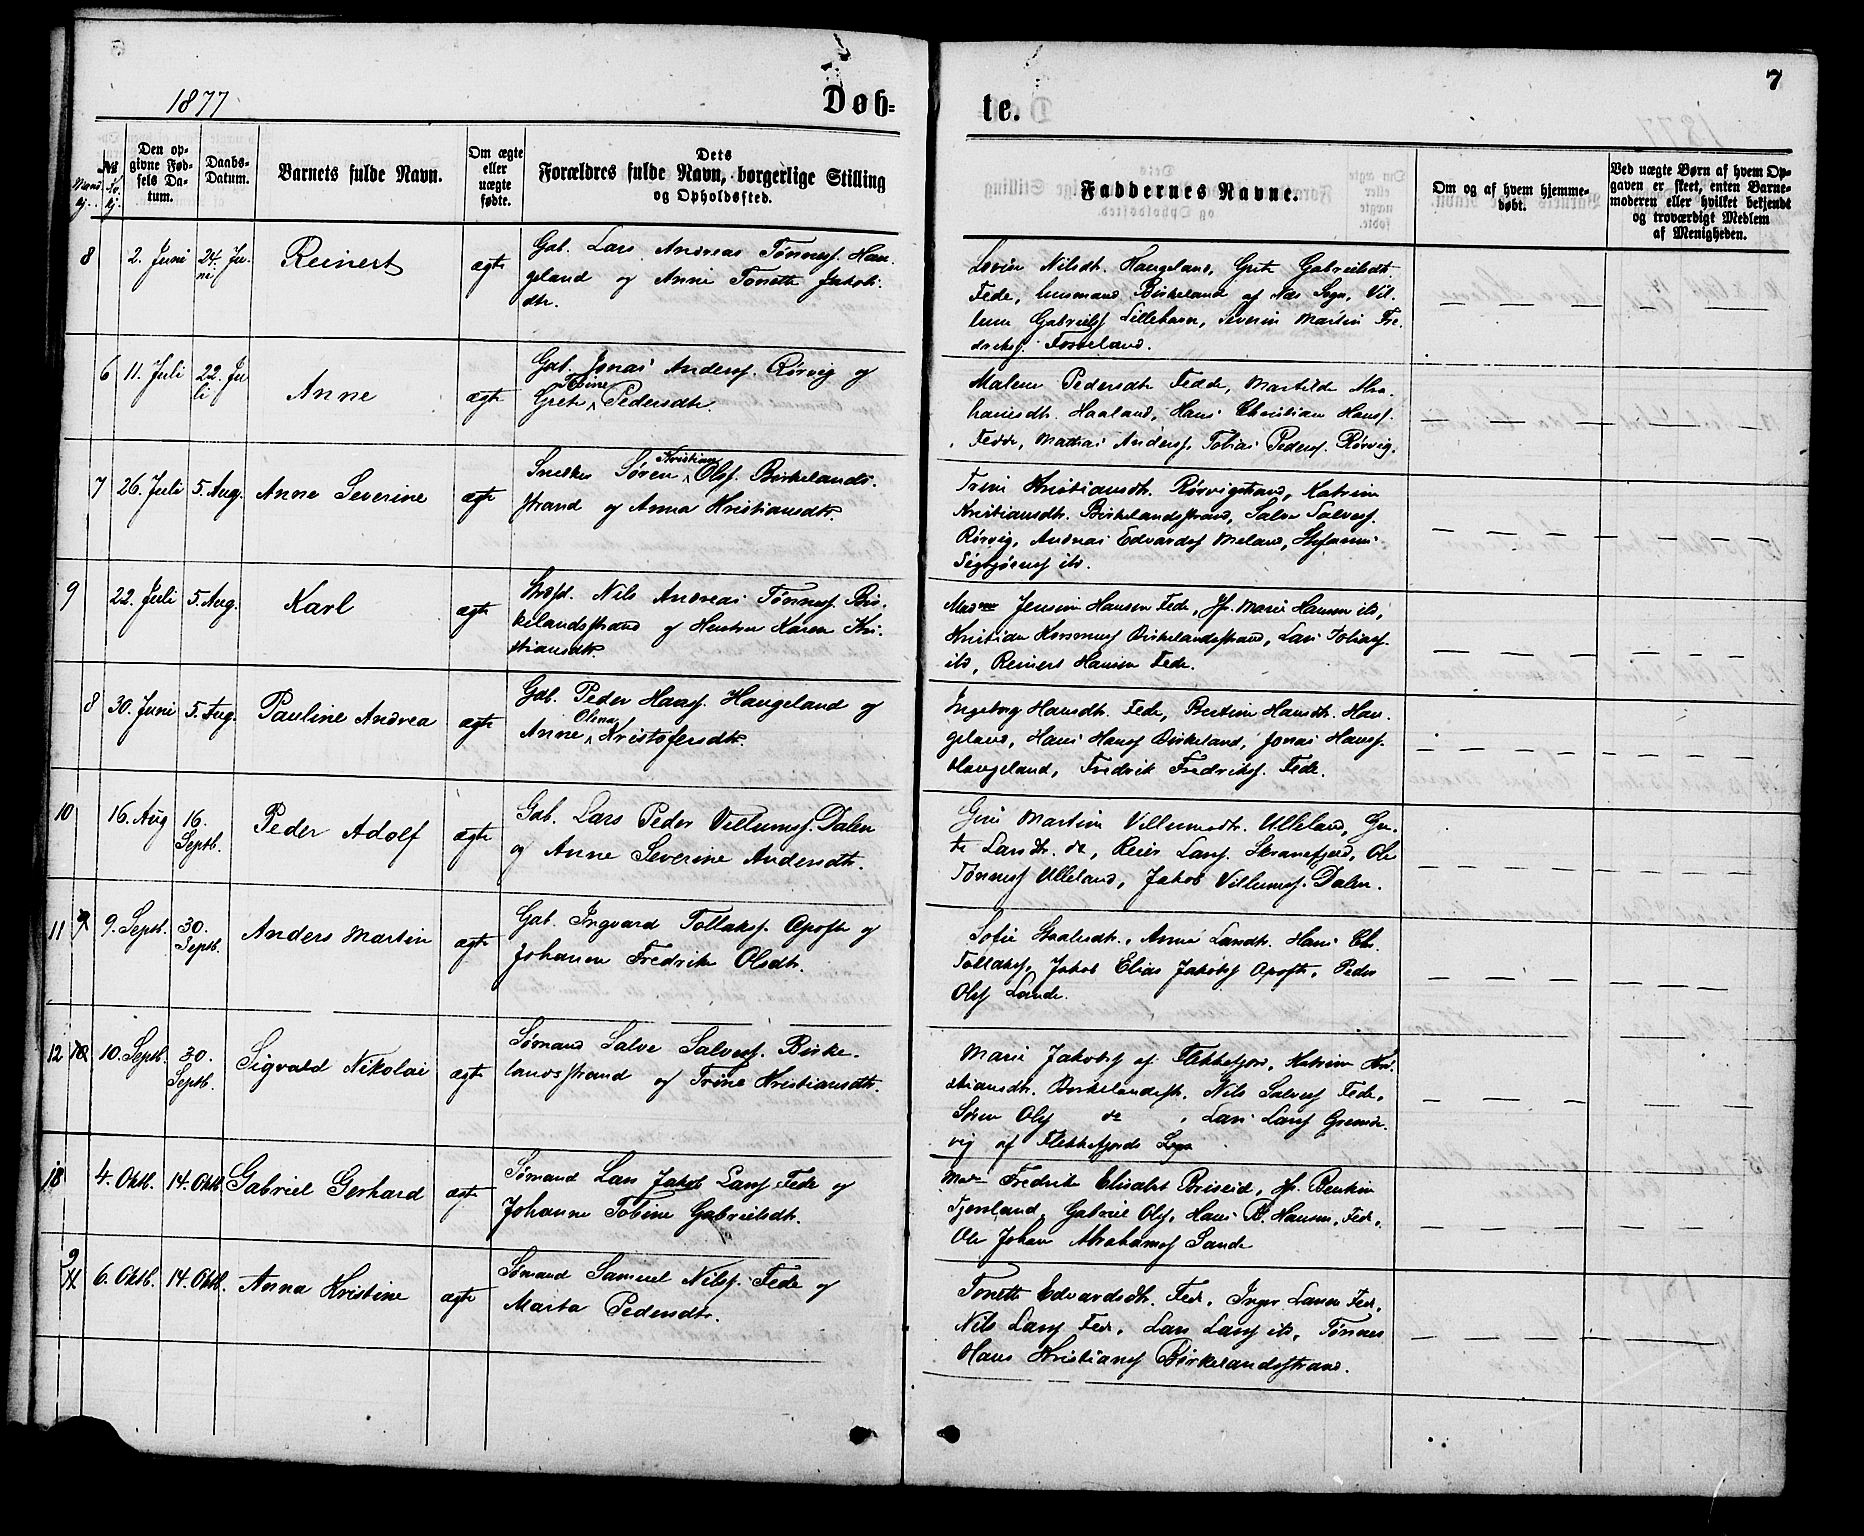 7
1877
Døb-
te.
Mandkj.
No
Kvkj.
Den op-
givne Fød-
sels Da-
tum.
Daabs-
Datum.
Barnets fulde Navn.
Om ægte
eller
uægte
fødte.
Dets
Forældres fulde Navn, borgerlige Stilling
og Opholdssted.
Faddernes Navne.
Om og af hvem hjemme-
døbt.
Ved uægte Børn af hvem Op-
gaven er skeet, enten Barne-
moderen eller hvilket bekjendt
og troværdigt Medlem
af Menigheden.
8 2. Juni 24. Ju-
ni
Reinert
ægte
Gab. Lars Andreas Tønness. Hau-
geland og Anne Tonette Jakobs-
dtr.
Lovise Nilsdt. Haugeland, Grete Gabrielsdt.
Fede, husmand Birkeland af Næs Sogn, Vil-
lum Gabriels. Lillehavn, Severin Martin Fre-
driks. Fosseland.
6 11. Juli 22. Ju-
li
Anne
ægte
Gab. Jonas Anders. Rørvig og
Grete Tobine Pedersdtr.
Malene Pedersdtr Fedde, Mathilde Abra-
hamsdt. Haaland, Hans Christian Hans.
Fedde, Mathias Anders. Tobias Peders. Rørvig.
7 26. Juli 5. Aug.
Anne Severine
ægte
Snekker Søren Kristian Ols. Birkelands-
strand og Anna Kristiansdtr.
Trine Kristiansdt. Rørvigstrand, Katrine
Kristiansdt. Birkelandsstrand, Salve Salves.
Rørvig, Andreas Edvards. Meland, Stefanus
Sigbjørns. ibd.
9 22. Juli 5. Aug.
Karl
ægte
Nils Andreas Tønness. Bir-
kelandsstrand og Karen Kri-
stiansdtr.
Madme Jensine Hansen Fede, Jf. Marie Hansen ibd,
Kristian Rasmuss. Birkelandsstrand, Lars Tobias.
ibd, Reinert Hansen Fede.
8 30. Juni 5. Aug.
Pauline Andrea
ægte
Gab. Peder Hans. Haugeland og
Anne Olina Kristofersdtr.
Ingeborg Hansdt. Fede, Bertine Hansdt. Hau-
geland, Hans Hans. Birkeland, Jonas Hans.
Haugeland, Fredrik Fredriks. Fede.
10 16. Aug 16.
Septb.
Peder Adolf
ægte
Gab. Lars Peder Villums. Dalen
og Anne Severine Andersdtr.
Gine Martine Villumsdt. Ulleland, Gre-
te Larsdt. do, Reier Lars. Skranefjeld, Ole
Tønness. Ulleland, Jakob Villums. Dalen.
11 9 9. Septb. 30.
Septb.
Anders Martin
ægte
Gab. Ingvard Tollaks. Apofte og
Johanne Fredrikke Olsdtr.
Sofie Staalesdt., Anne Larsdt. Hans Ch.
Tollaks, Jakob Elias Jakobs. Apofte, Peder
Ols. Lande.
12 10 10. Septb. 30.
Septb.
Sigvald Nikolai
ægte
Sømand Salve Salves. Birke-
landsstrand og Trine Kristiansdtr.
Marie Jakobs. af Flekkefjord, Katrine Kri-
stiansdt. Birkelandsstr. Nils Salves. Fede,
Søren Ols. do, Lars Lars.
vig af Flekkefjords Sogn
13 4. Oktb. 14. Oktb.
Gabriel Gerhard
ægte
Sømand Lars Jakob Lars. Fede og
Johanne Tobine Gabrielsdt.
Mad. Fredrikke Elisabet Briseid, Jf. Bentine
Tjorsland, Gabriel Ols. Hans B. Hansen, Fede,
Ole Johan Abrahams. Sande
9 6. Oktb. 14. Oktb.
Anna Kristine
ægte
Sømand Samuel Nils. Fede og
Marta Pedersdtr.
Tonette Edvardsdt. Fede, Inger Larsen Fede,
Nils Lars. Fede, Lars Lars. ibd, Tønnes
Hans Kristians. Birkelandsstrand.